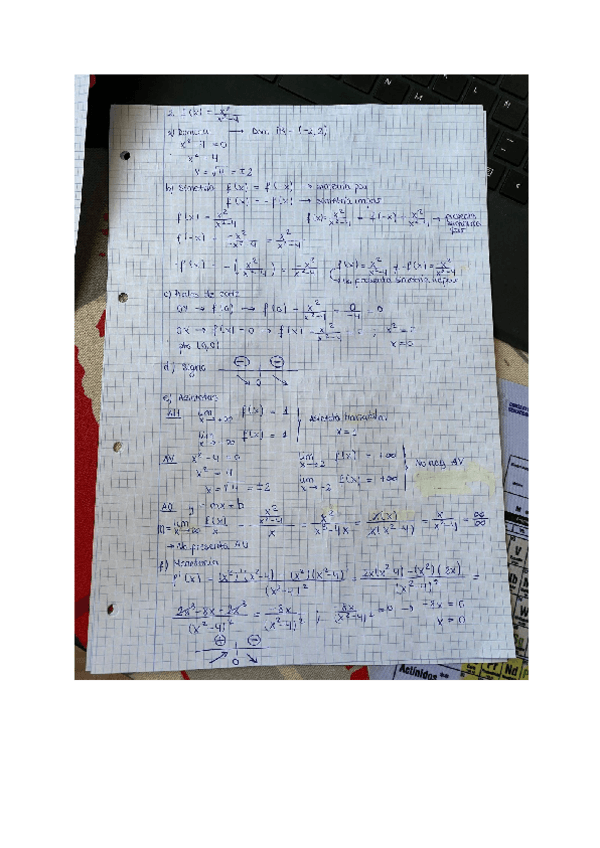 2. f(x) = x²/x²-4
a) Dominio → Dom: R - {-2, 2}
x² - 4 = 0
x² = 4
x = √4 = ±2
b) Simetría f(x) = f(-x) → simetría par
f(x) = -f(x) → simetría impar
f(x) = x²/x²-4 f(x) = x²/x²-4 = f(-x) = x²/x²-4 → presenta simetría par
f(-x) = -x²/-x²-4 = x²/x²-4
-f(x) = -(x²/x²-4) = -x²/x²-4 f(x) = x²/x²-4 ≠ -f(x) = x²/x²-4
No presenta simetría impar
c) Puntos de corte
OY → f(0) → f(0) = x²/x²-4 = 0/-4 = 0
OX → f(x) = 0 → f(x) = x²/x²-4 ; x² = 0
pto (0,0) x = 0
d) Signo - -
0
e) Asíntotas
AH lim x→∞ f(x) = 1 Asíntota horizontal
lim f(x) = 1
AV x² - 4 = 0 lim x→2 f(x) = +∞ No hay AV
x² = 4 lim x→-2 f(x) = +∞
x = √4 = ±2
AO y = mx + b
lim x→∞ f(x)/x = x²/x²-4/x = x²/x³-4x = x(x)/x(x²-4) = x/x²-4 = ∞/∞
→ No presenta AO
f) Monotonía
= 2x(x²-4) - (x²)(2x)/(x²-4)² =
2x³-8x-2x³/(x²-4)² = -8x/(x²-4)² ; -8x/(x²-4)² = 0 → -8x = 0
x = 0
+ -
0
Actínidos **
V
Nd